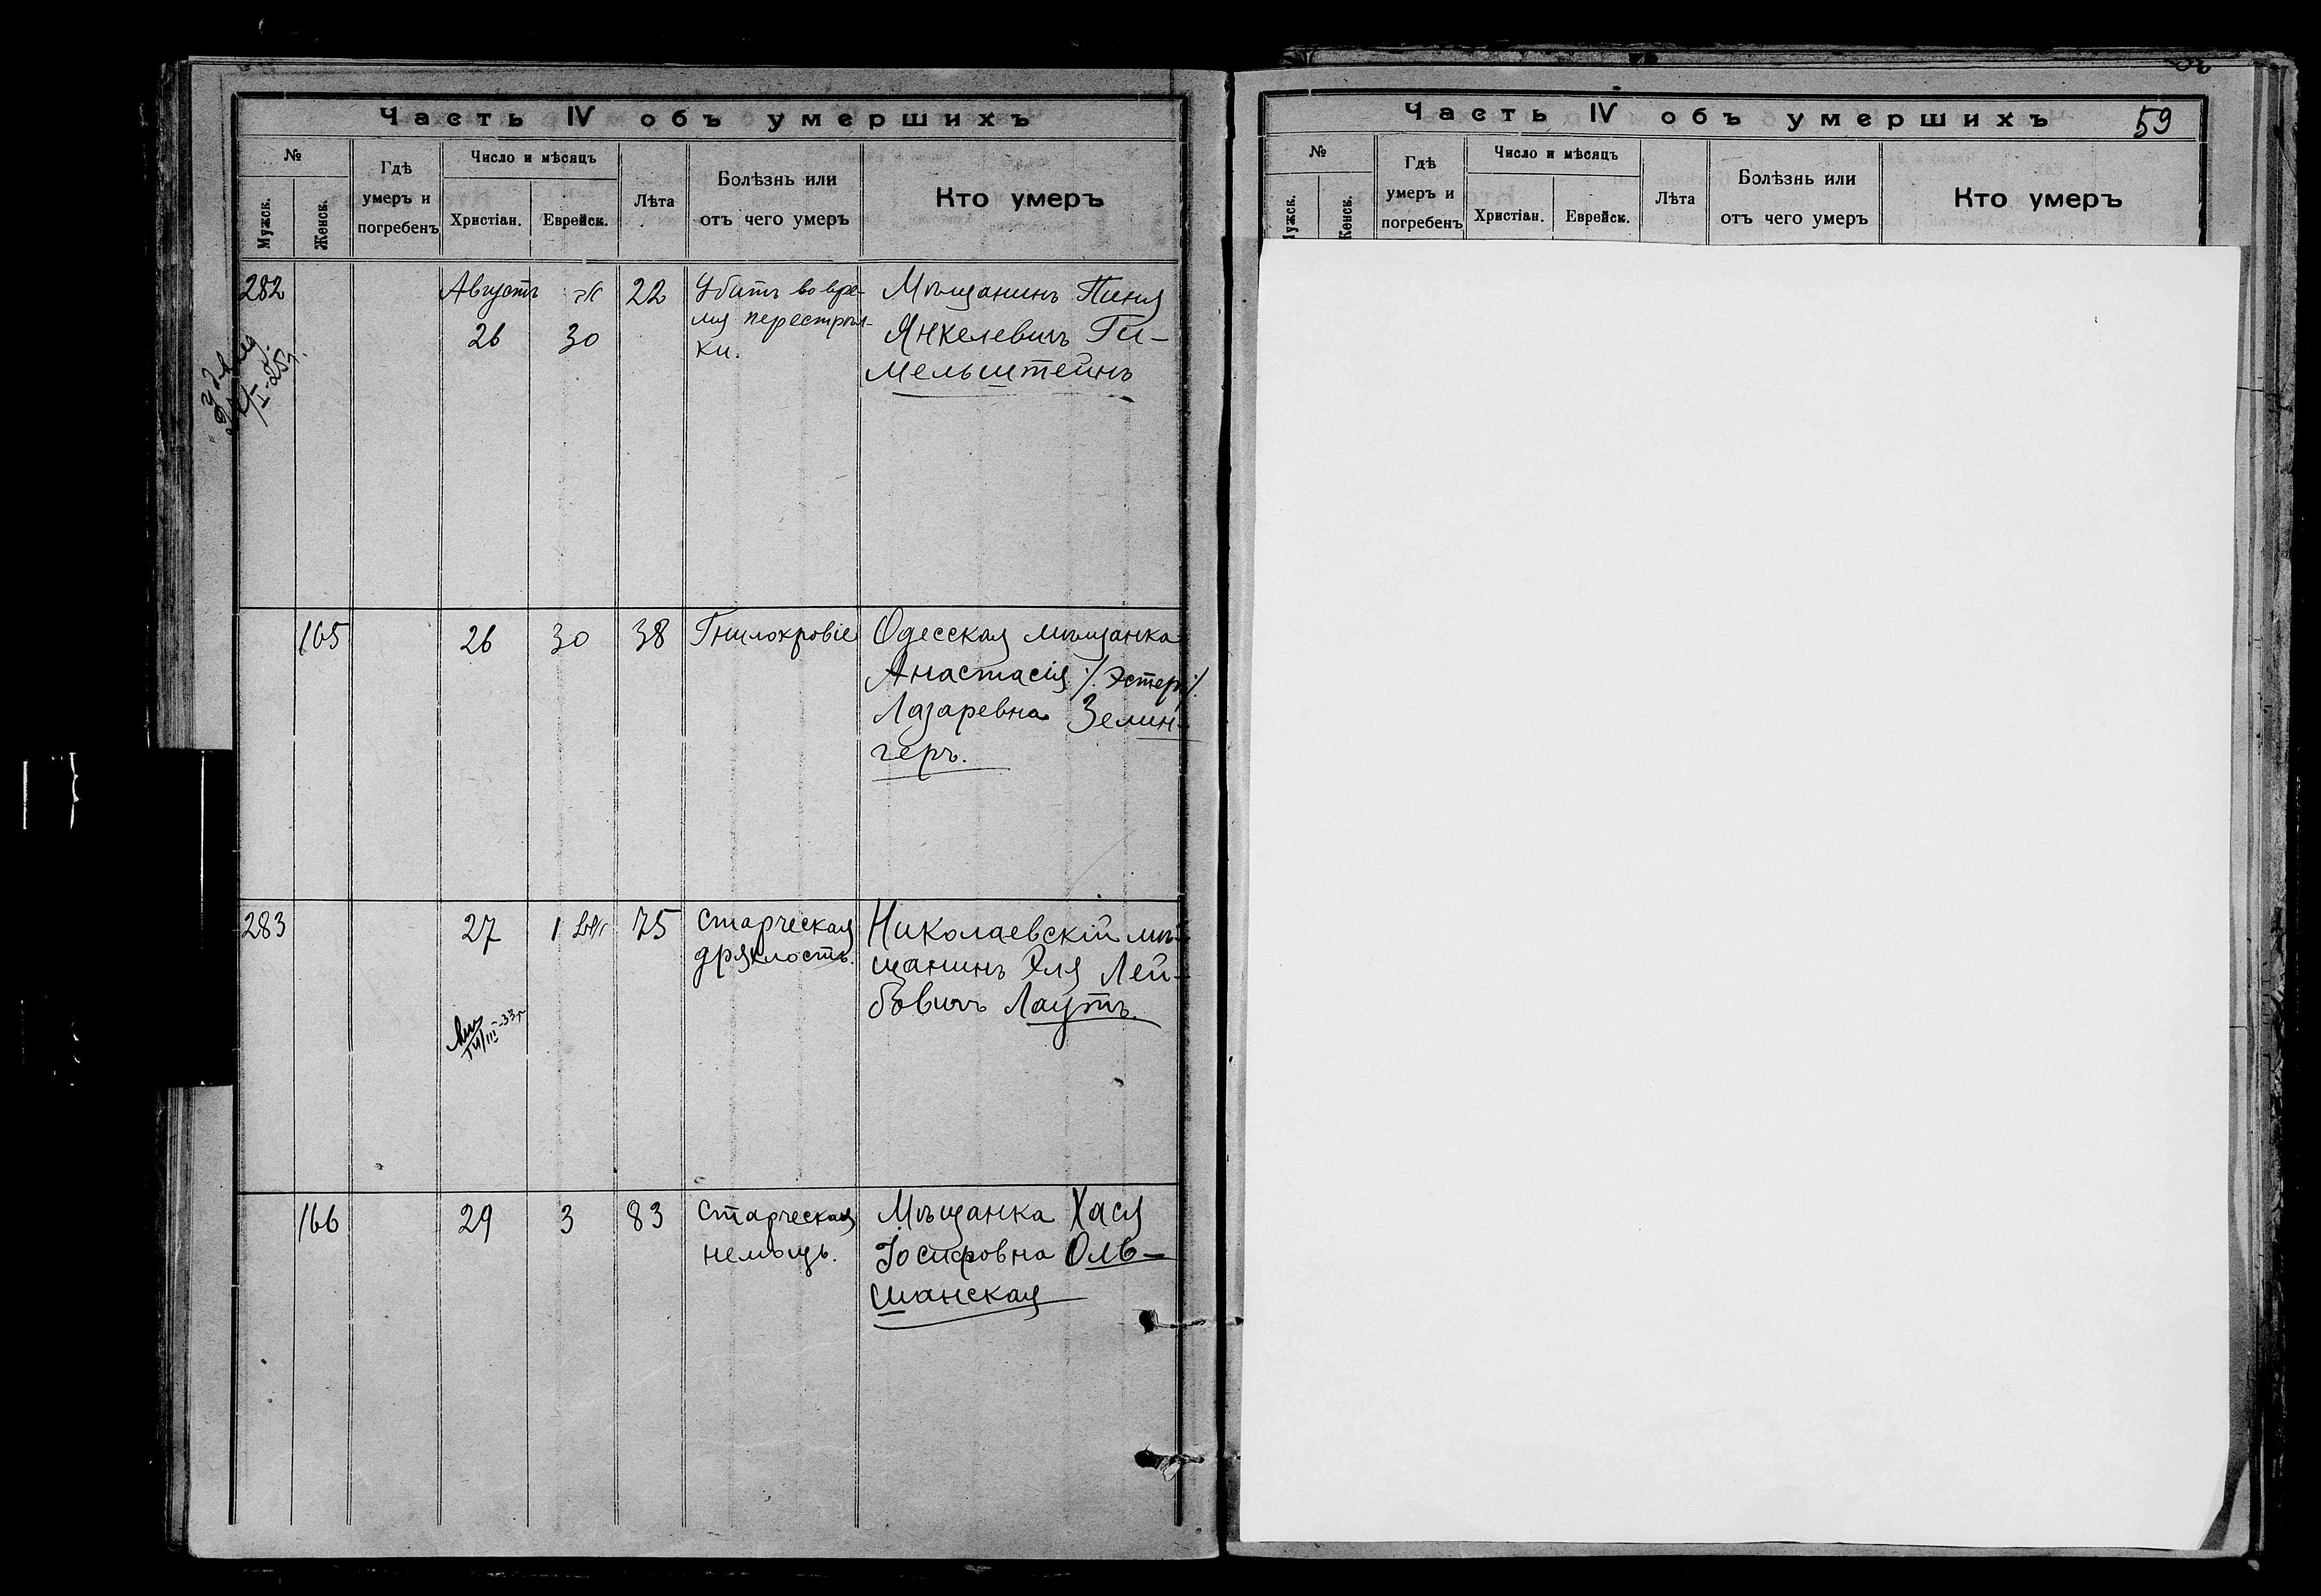 Часть IV объ умершихъ
№
Мужск.
Женск.
Гдѣ
умеръ и
погребенъ
Число и мѣсяцъ
Христіан.
Еврейск.
Лѣта
Болѣзнь или
отъ чего умеръ
Кто умеръ
282
Августъ
26
30
22
Убитъ во вре-
мя перестрѣл-
ки.
Мѣщанинъ Пиня
Янкелевичъ Ги-
мельштейнъ
165
26
30
38
Гнилокровіе
Одесская мѣщанка
Анастасія ./. Эстеръ ./.
Лазаревна Зелин-
геръ.
283
27
1
75
Старческая
дряхлость.
Николаевскій мѣ-
щанинъ Эля Лей-
бовичъ Лаутъ.
III-33г.
166
29
3
83
Старческая
немощь.
Мѣщанка Хася
Іосифовна Оль-
шанская
Часть IV объ умершихъ
59
№
ужск.
Женск.
Гдѣ
умеръ и
погребенъ
Число и мѣсяцъ
Христіан.
Еврейск.
Лѣта
Болѣзнь или
отъ чего умеръ
Кто умеръ